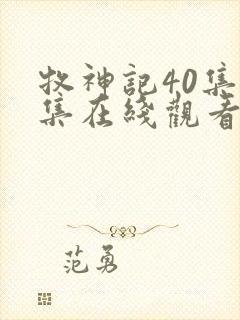 牧神記40集
集在綫觀看
范勇